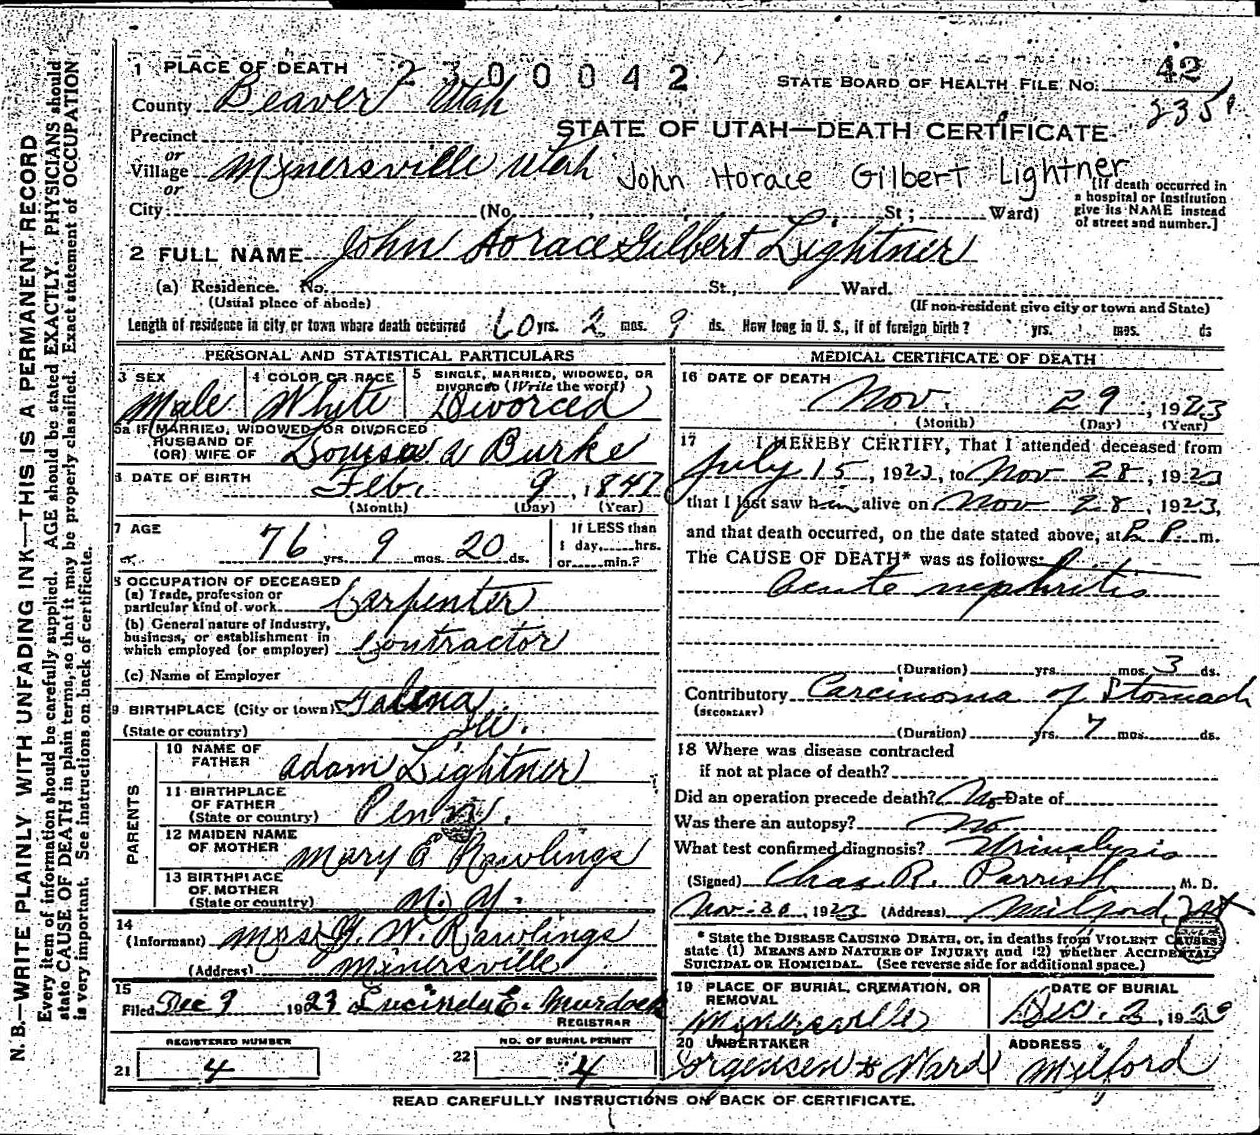 1 PLACE OF DEATH 2300042
STATE BOARD OF HEALTH FILE NO. 42
235
County Beaver Utah
STATE OF UTAH—DEATH CERTIFICATE
Precinct
or
Village Minersville Utah John Horace Gilbert Lightner
or
[If death occurred in a hospital or institution give its NAME instead of street and number.]
City (No. , St; Ward)
2 FULL NAME John Horace Gilbert Lightner
(a) Residence. No. St., Ward.
(Usual place of abode) (If non-resident give city or town and State)
Length of residence in city or town where death occurred 60 yrs. 2 mos. 9 ds. How long in U. S., if of foreign birth? yrs. mos. ds
PERSONAL AND STATISTICAL PARTICULARS
3 SEX
Male
4 COLOR OR RACE
White
5 SINGLE, MARRIED, WIDOWED, OR DIVORCED (Write the word)
Divorced
5a IF MARRIED, WIDOWED OR DIVORCED
HUSBAND OF
(OR) WIFE OF Louisa a Burke
6 DATE OF BIRTH Feb. 9, 1847
(Month) (Day) (Year)
7 AGE
76 yrs. 9 mos. 20 ds.
If LESS than
1 day, hrs.
or min.?
8 OCCUPATION OF DECEASED
(a) Trade, profession or
particular kind of work Carpenter
(b) General nature of industry,
business, or establishment in
which employed (or employer) Contractor
(c) Name of Employer
9 BIRTHPLACE (City or town) Galena
(State or country) Ill.
PARENTS
10 NAME OF
FATHER Adam Lightner
11 BIRTHPLACE
OF FATHER
(State or country) Penn.
12 MAIDEN NAME
OF MOTHER Mary E Rawlings
13 BIRTHPLACE
OF MOTHER
(State or country) N. Y.
14
(Informant) Mrs J. W. Rawlings
(Address) Minersville
15
Filed Dec 9 1923 Lucinda E. Murdock
REGISTRAR
REGISTERED NUMBER
21 4
NO. OF BURIAL PERMIT
22 4
MEDICAL CERTIFICATE OF DEATH
16 DATE OF DEATH
Nov. 29, 1923
(Month) (Day) (Year)
17 I HEREBY CERTIFY, That I attended deceased from
July 15, 1923, to Nov 28, 1923
that I last saw him alive on Nov 28, 1923,
and that death occurred, on the date stated above, at P. m.
The CAUSE OF DEATH* was as follows:
Acute nephritis
(Duration) yrs. mos. 3 ds.
Contributory Carcinoma of Stomach
(SECONDARY)
(Duration) yrs. 7 mos. ds.
18 Where was disease contracted
if not at place of death?
Did an operation precede death? No Date of
Was there an autopsy? No
What test confirmed diagnosis? Urinalysis
(Signed) Chas. R. Parrish, M. D.
Nov. 30, 1923 (Address) Milford, Ut
* State the DISEASE CAUSING DEATH, or, in deaths from VIOLENT CAUSES
state (1) MEANS AND NATURE OF INJURY; and (2) whether ACCIDENTAL
SUICIDAL OR HOMICIDAL. (See reverse side for additional space.)
19 PLACE OF BURIAL, CREMATION, OR
REMOVAL
Minersville
DATE OF BURIAL
Dec. 2, 1923
20 UNDERTAKER
Jorgensen & Ward
ADDRESS
Milford
READ CAREFULLY INSTRUCTIONS ON BACK OF CERTIFICATE.
N. B.—WRITE PLAINLY WITH UNFADING INK—THIS IS A PERMANENT RECORD
Every item of information should be carefully supplied. AGE should be stated EXACTLY. PHYSICIANS should
state CAUSE OF DEATH in plain terms, so that it may be properly classified. Exact statement of OCCUPATION
is very important. See instructions on back of certificate.